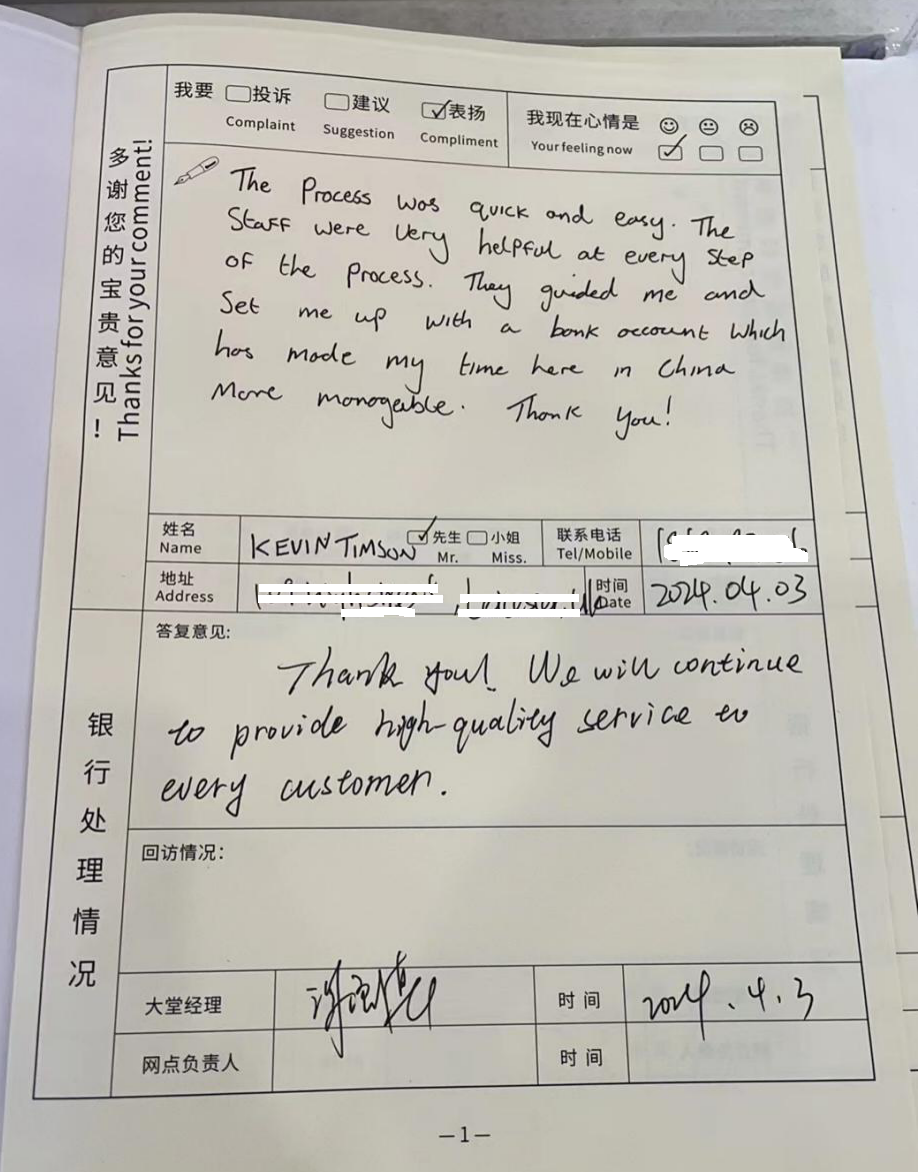 多谢您的宝贵意见！
Thanks for your comment!
我要 投诉 建议 表扬
Complaint Suggestion Compliment
我现在心情是
Your feeling now
The Process was quick and easy. The
Staff were very helpful at every step
of the process. They guided me and
Set me up with a bank account which
has made my time here in China
More manageable. Thank you!
姓名
Name
KEVIN TIMSON
先生 小姐
Mr. Miss.
联系电话
Tel/Mobile
地址
Address
时间
Date
2024.04.03
银行处理情况
答复意见:
Thank you! We will continue
to provide high-quality service to
every customer.
回访情况:
大堂经理
时间
2024.4.3
网点负责人
时间
—1—